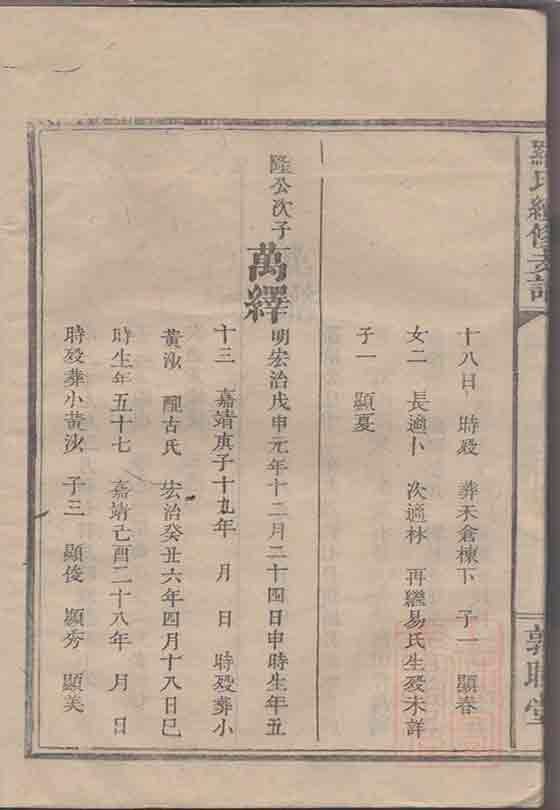 羅氏續修支譜
敦睦堂
十八日　時歿　葬天倉棟下　子一　顯春
女二　長適卜　次適林　再繼易氏生歿未詳
子一　顯夏
隆公次子
萬繹
明宏治戊申元年十二月二十四日申時生年五
十三　嘉靖庚子十九年　月　日　時歿葬小
黃沙　配古氏　宏治癸丑六年四月十八日巳
時生年五十七　嘉靖己酉二十八年　月　日
時歿葬小黃沙　子三　顯俊　顯秀　顯美